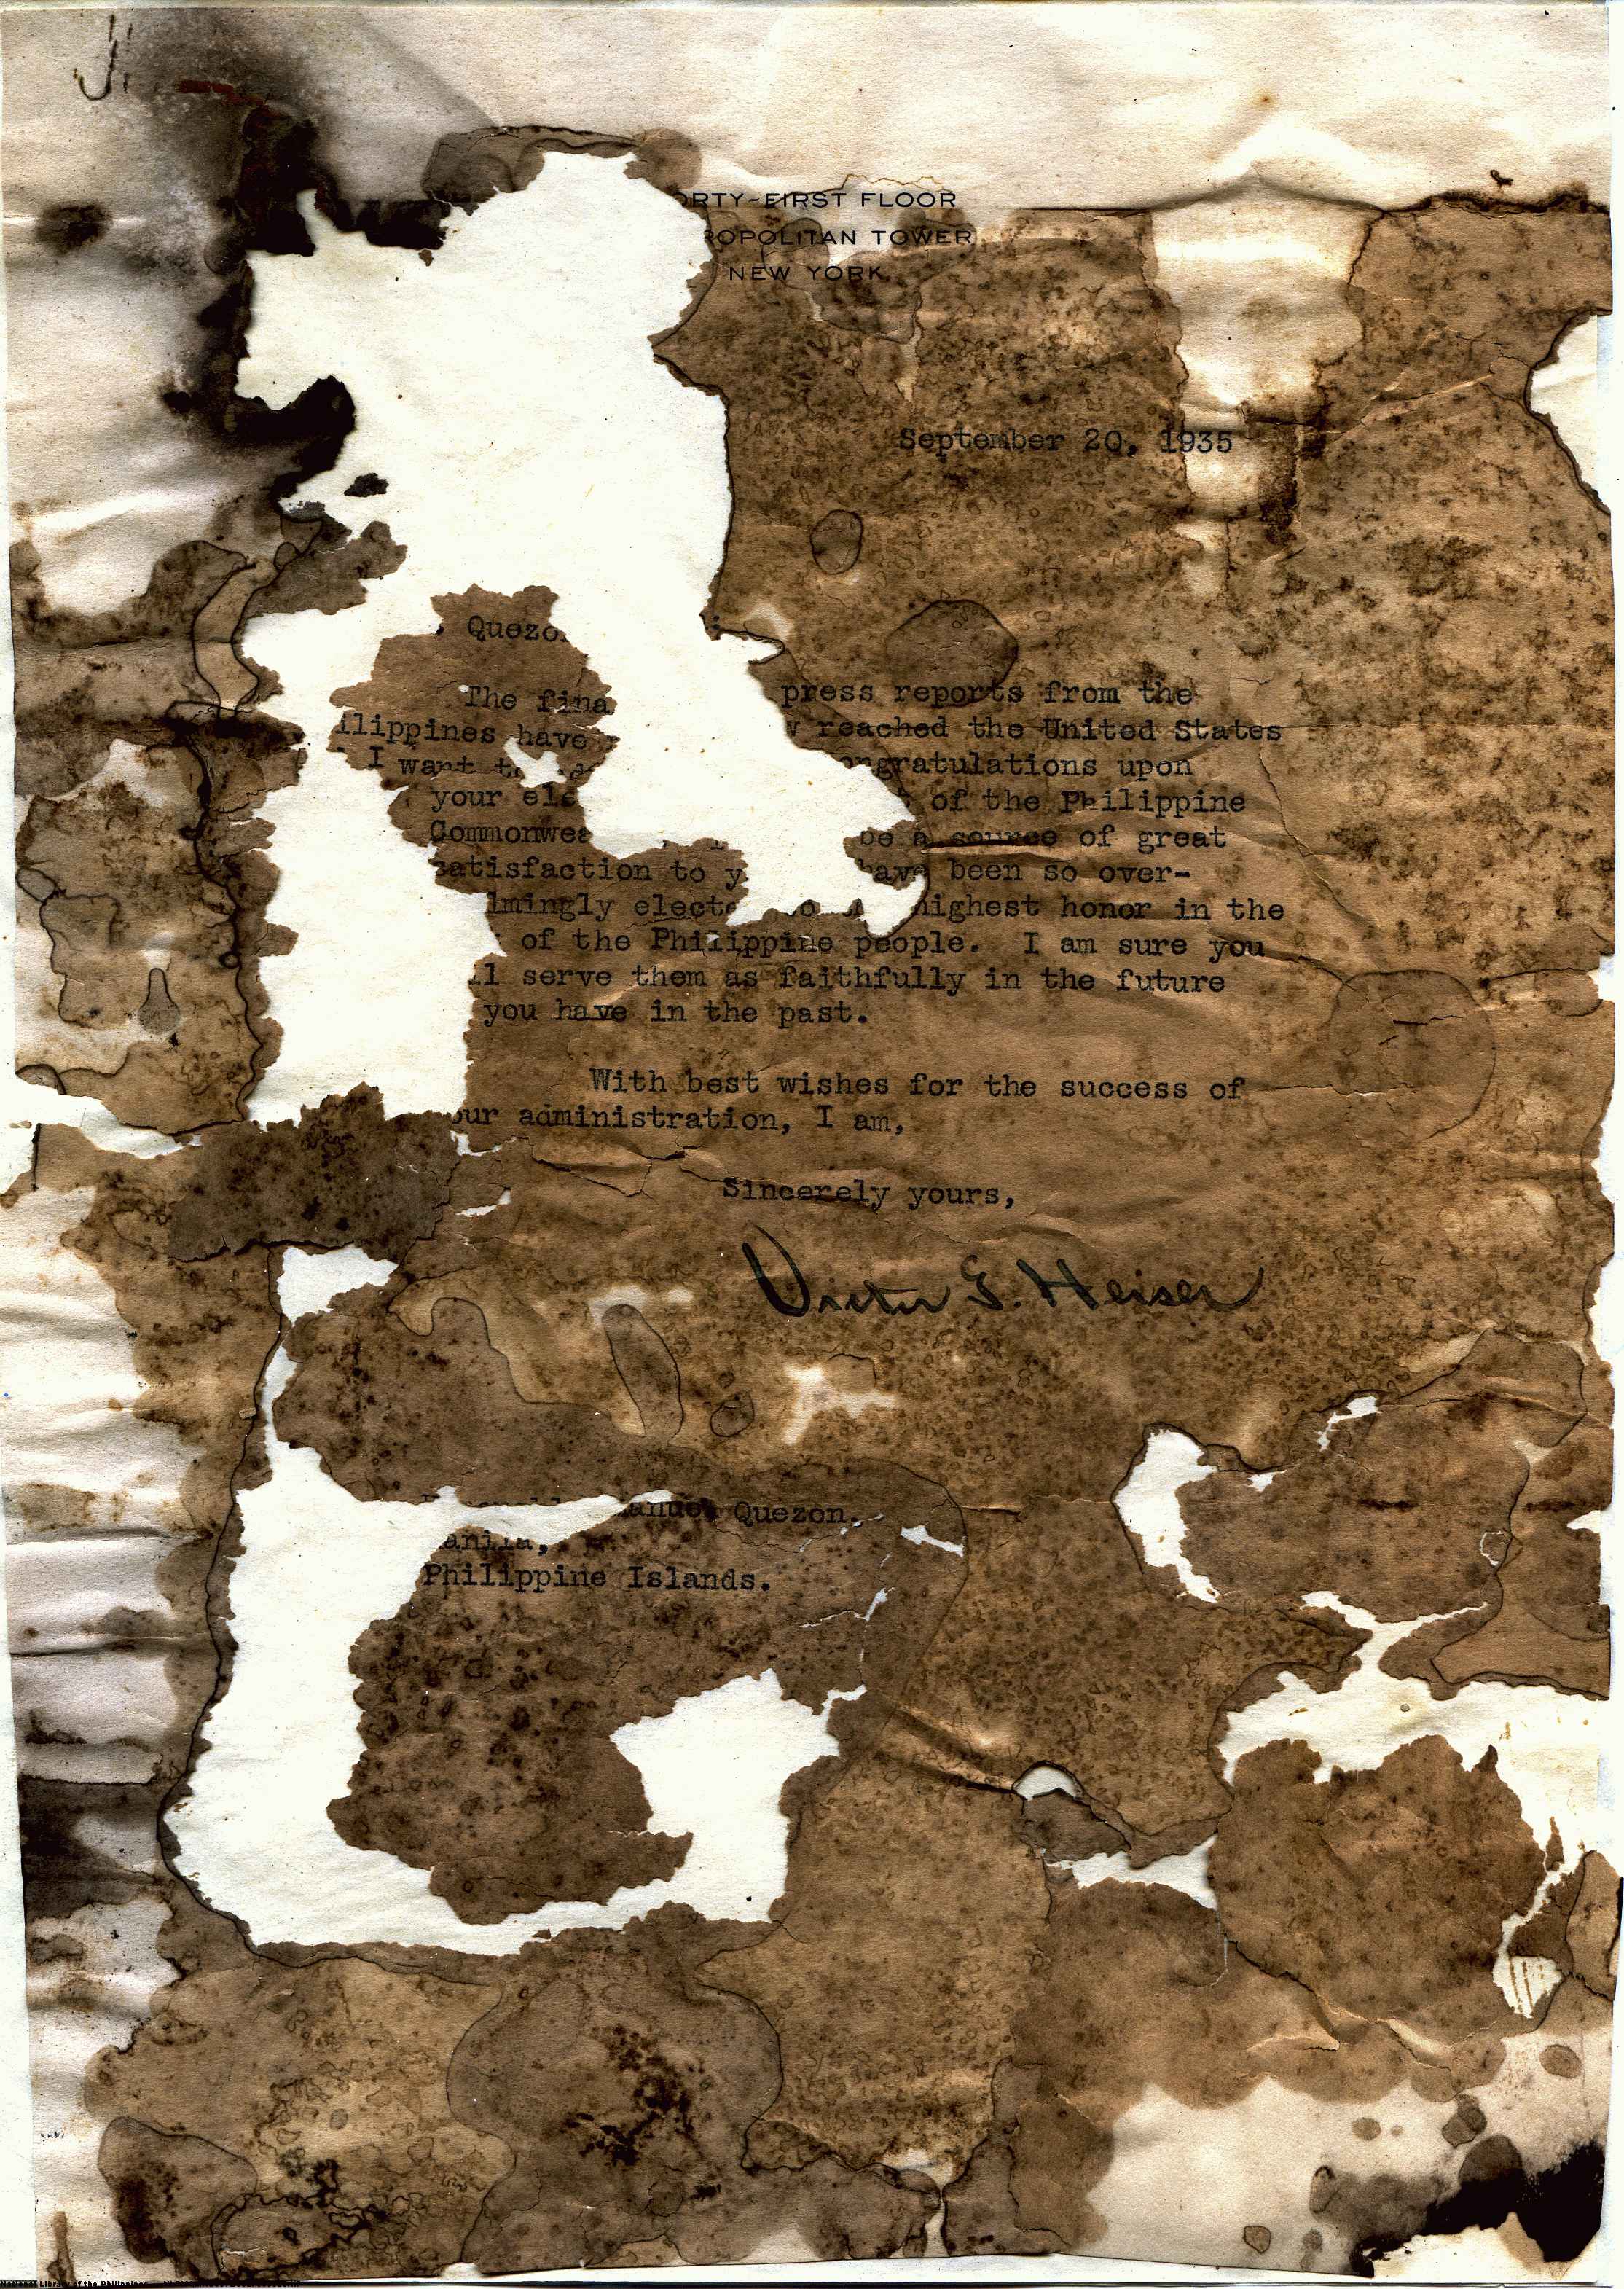 ORTY-FIRST FLOOR
ROPOLITAN TOWER
NEW YORK
September 20, 1935
. Quezo
The fina press reports from the
ilippines have w reached the United States
I want t ongratulations upon
your ele of the Philippine
Commonwea be a source of great
satisfaction to y have been so over-
lmingly electe to th highest honor in the
of the Philippine people. I am sure you
ll serve them as faithfully in the future
you have in the past.
With best wishes for the success of
our administration, I am,
Sincerely yours,
Victor G. Heiser
anuel Quezon,
anila,
Philippine Islands.
National Library of the Philippines